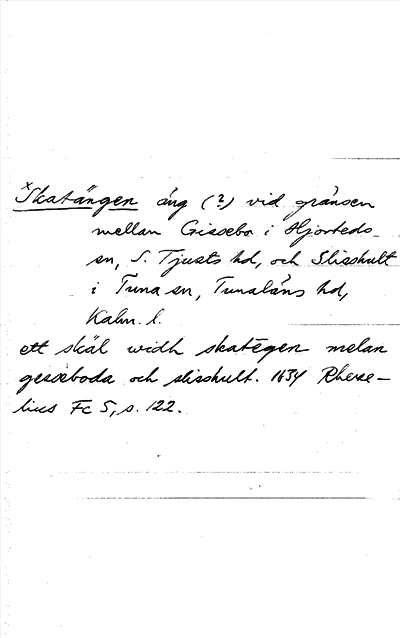 ×Skatängen äng (?) vid gränsen
mellan Gissebo i Hjorteds
sn, S. Tjusts hd, och Slisshult
i Tuna sn, Tunaläns hd,
Kalm. l.
ett skäl widh skatëgen melan
gesseboda och slisshult. 1634 Rheze-
lius Fc 5, s. 122.